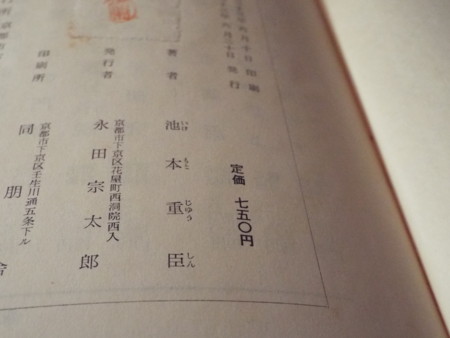 月十日 印刷
月三十日 発行
定価 七五〇円
著者 池本重臣
いけ もと じゅう しん
発行者 永田宗太郎
京都市下京区花屋町西洞院西入
印刷所 同朋舎
京都市下京区壬生川通五条下ル